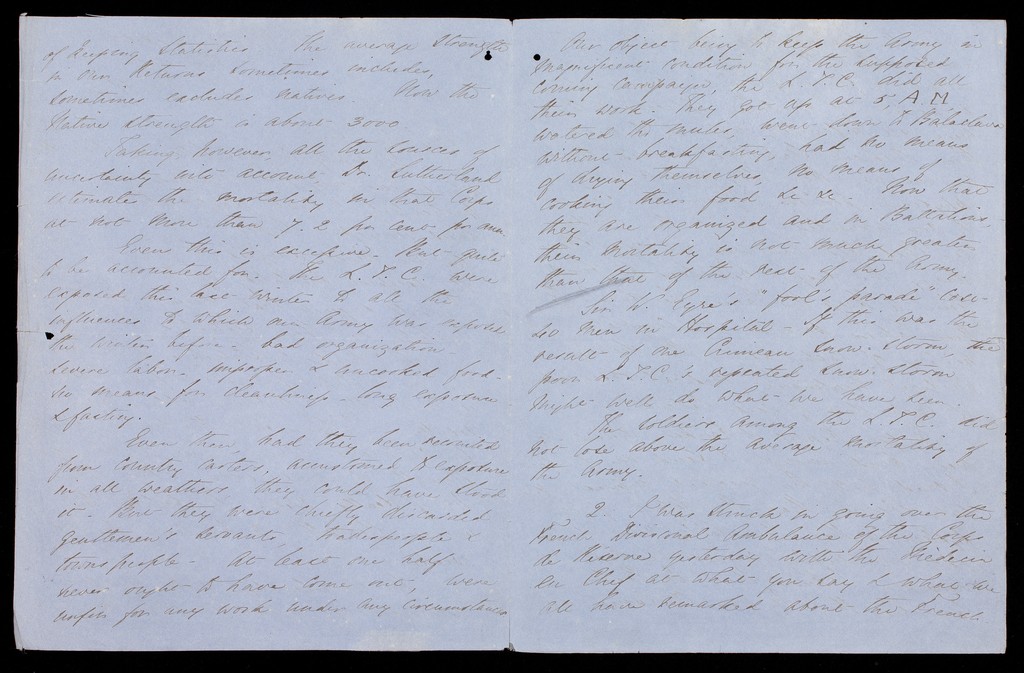 of keeping Statistics. The average Strength
in our Returns sometimes includes,
sometimes excludes natives. Now the
Native Strength is about 3000.
Taking, however, all the sources of
uncertainty into account, Dr. Sutherland
estimates the mortality in that Corps
at not more than 7.2 per cent per ann
Even this is excessive. But quite
to be accounted for. The L.T.C. were
exposed this last winter to all the
influences to which our Army was exposed
the winter before - bad organization -
severe labor - improper & uncooked food -
no means for cleanliness - long exposure
& fasting.
Even then, had they been recruited
from country carters, accustomed to exposure
in all weathers, they could have stood
it - But they were chiefly discarded
gentlemen's servants, tradespeople &
townspeople - At least one half
never ought to have come out, were
unfit for any work under any circumstances
Our object being to keep the Army in
magnificent condition for the supposed
coming campaign, the L.T.C. did all
their work. They got up at 5, AM
watered the mules, went down to Balaclava
without breakfasting, had no means
of drying themselves, no means of
cooking their food &c &c. Now that
they are organized and in Battalions
their mortality is not much greater
than that of the rest of the Army.
Sir W. Eyre's "fool's parade" cost
80 men in Hospital - If this was the
result of one Crimean Snow-storm, the
poor L.T.C.'s repeated Snow-storm
might well do what we have seen.
The soldiers among the L.T.C. did
not lose above the average mortality of
the Army.
2. I was struck in going over the
French Divisional Ambulance of the Corps
de Réserve yesterday with the Médecin
en Chef at what you say & what we
all have remarked about the French